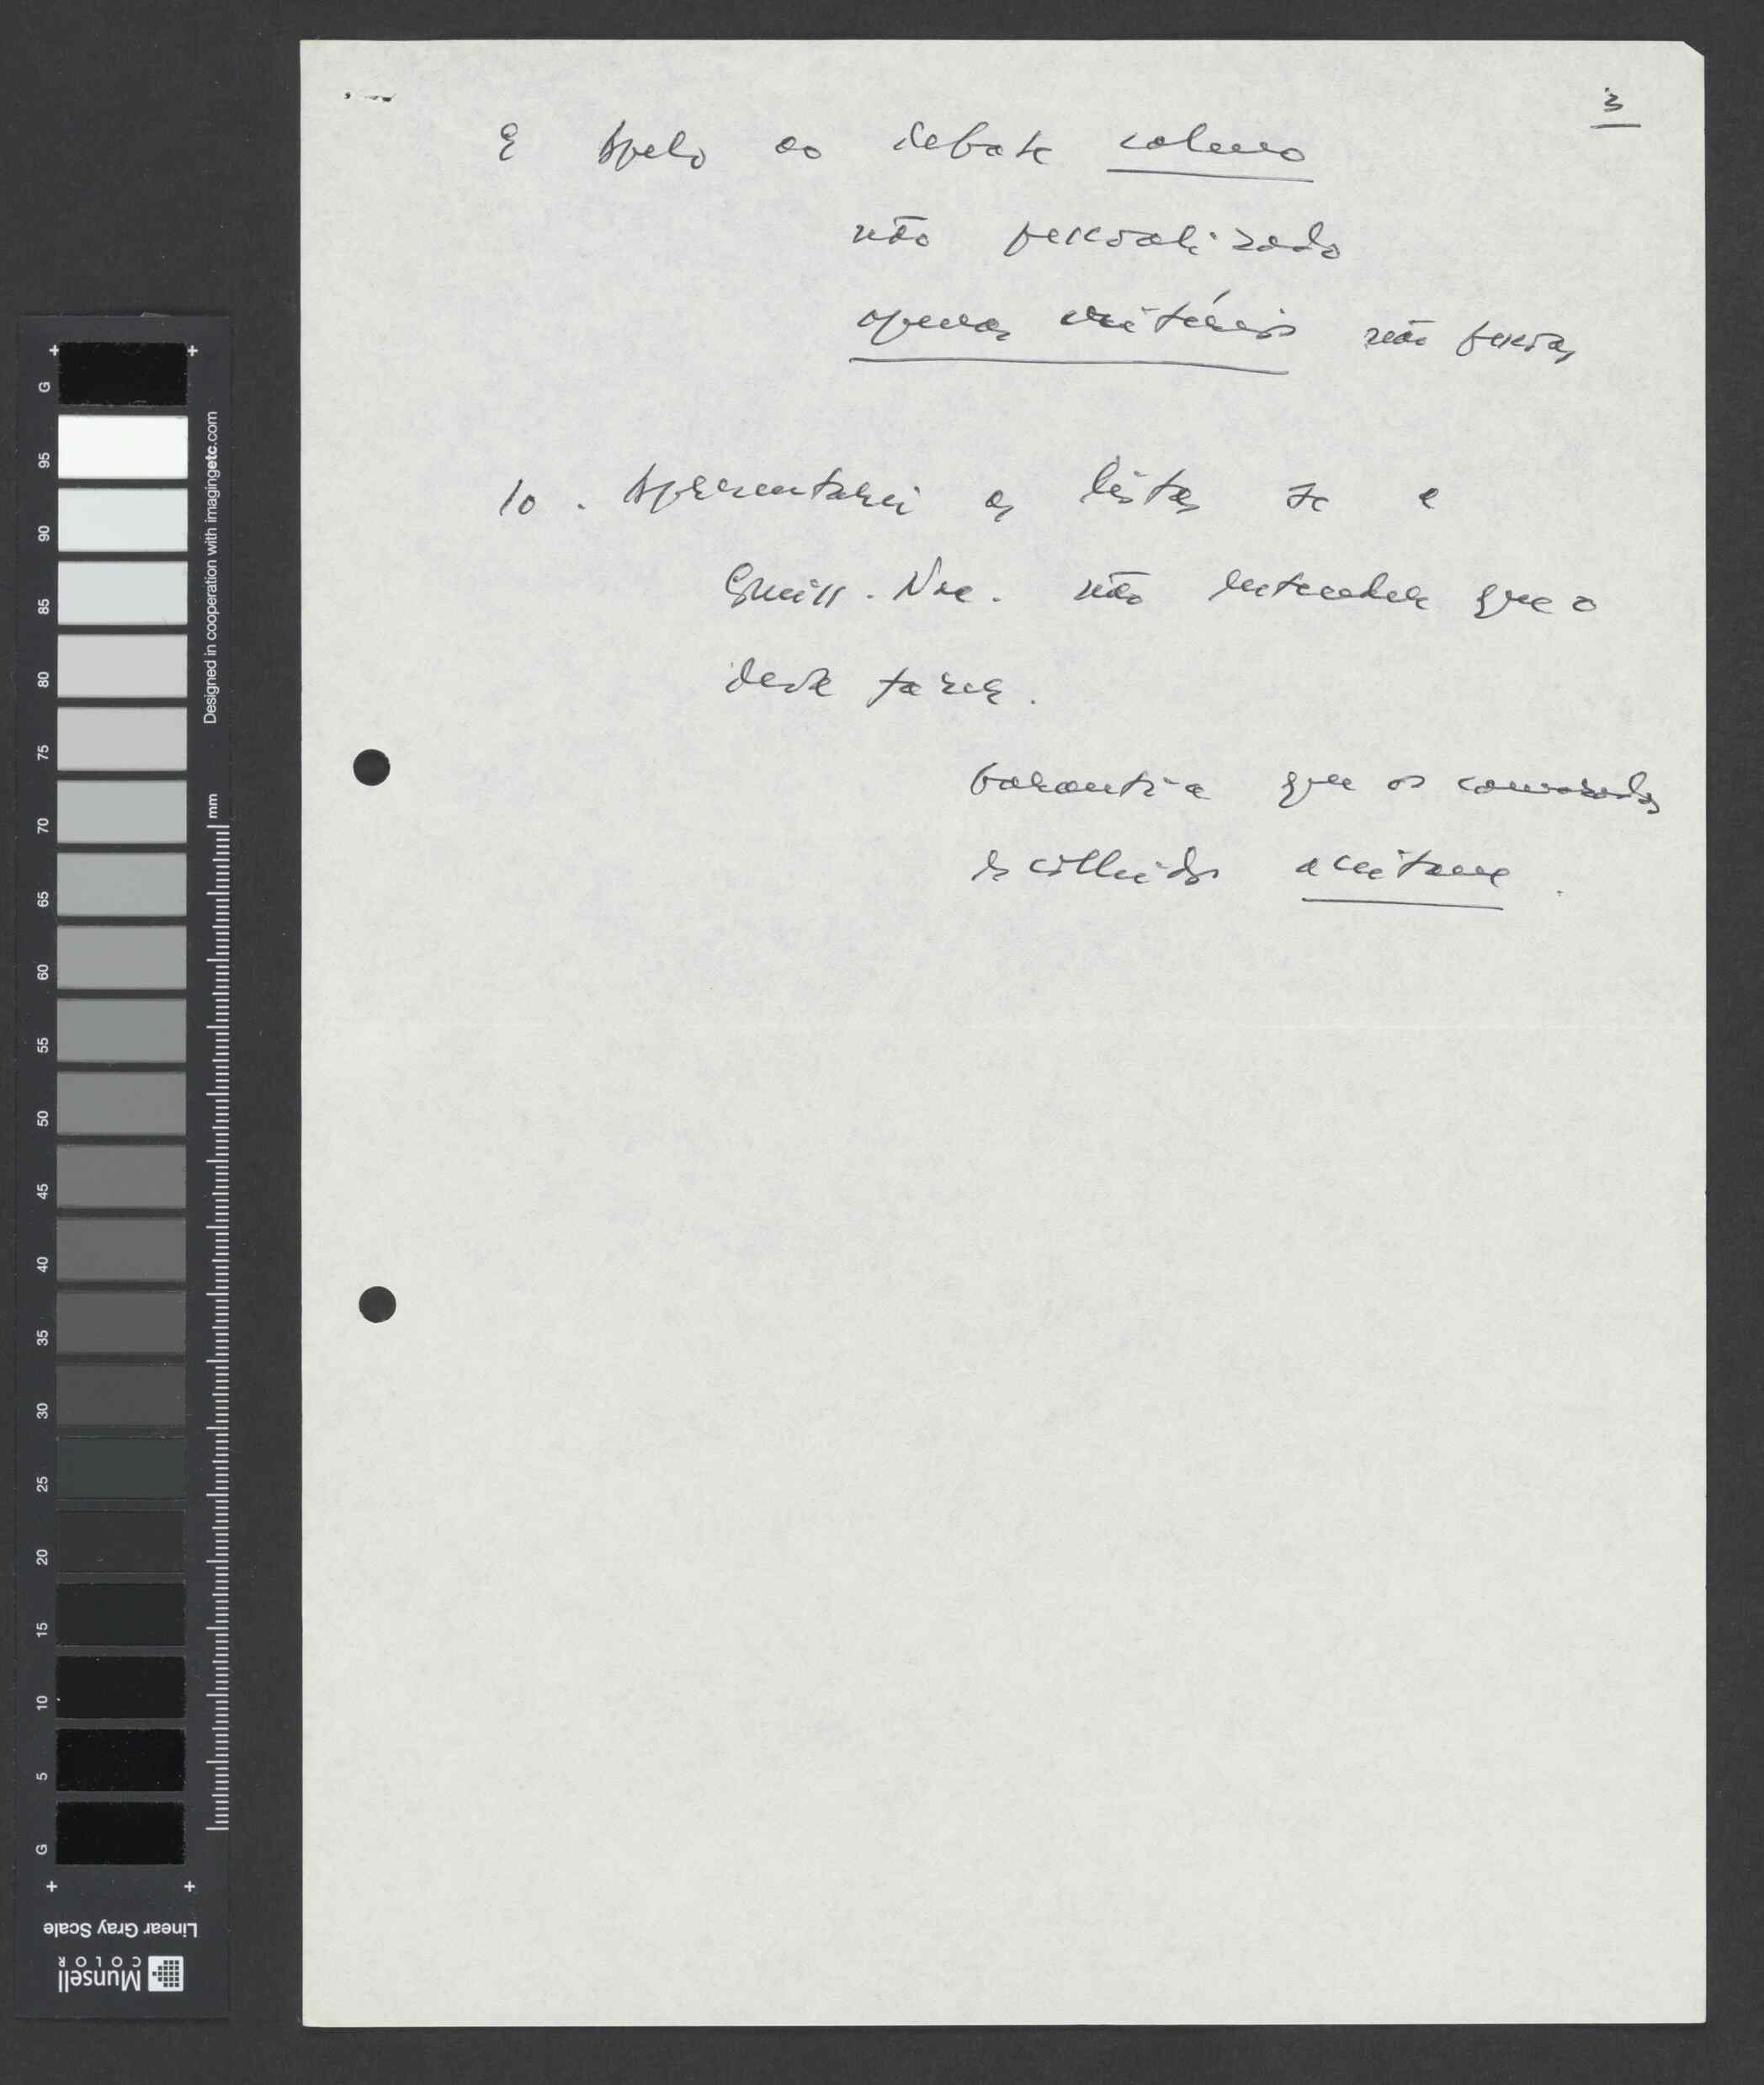 3
9 Apelo ao debate calmo
não pessoalizado
apenas critérios não pessoas
10. Apresentarei as listas se a
Comiss. Nac. não entender que o
deva fazer.
Garantia que os camaradas
escolhidos aceitam.
G
95
90
85
80
75
70
65
60
55
50
45
40
35
30
25
20
15
10
5
G
Designed in cooperation with imagingetc.com
mm
Linear Gray Scale
Munsell
COLOR